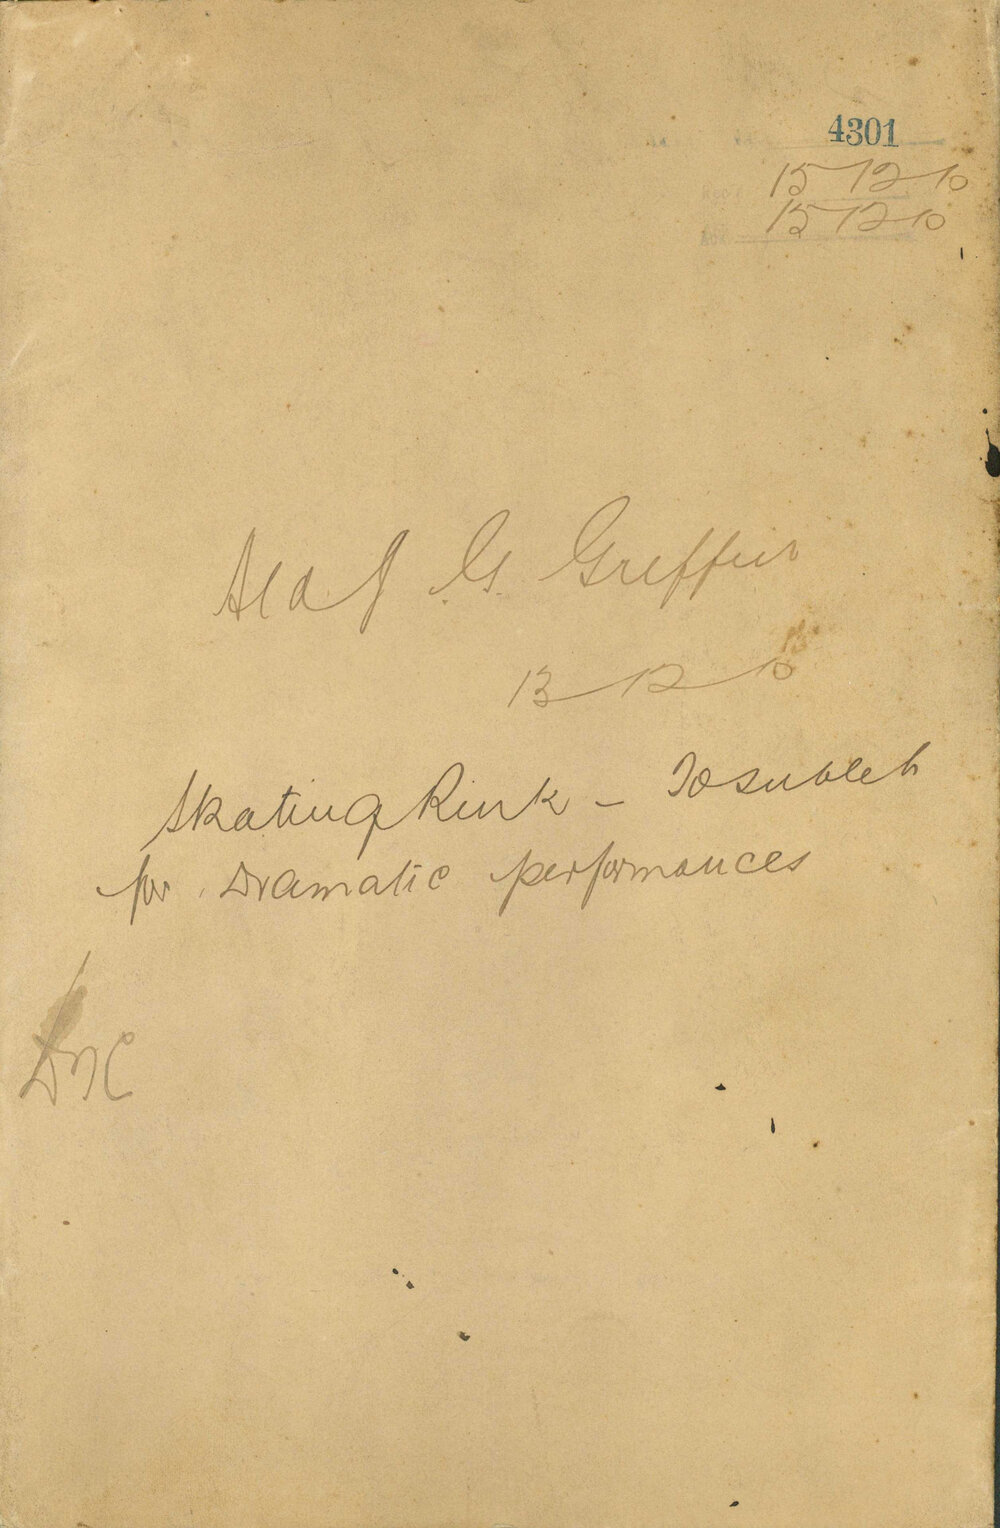 4301
15-12-10
15-12-10
G. Greffin
13-12-10
Skating Rink - To sublet
for Dramatic performances